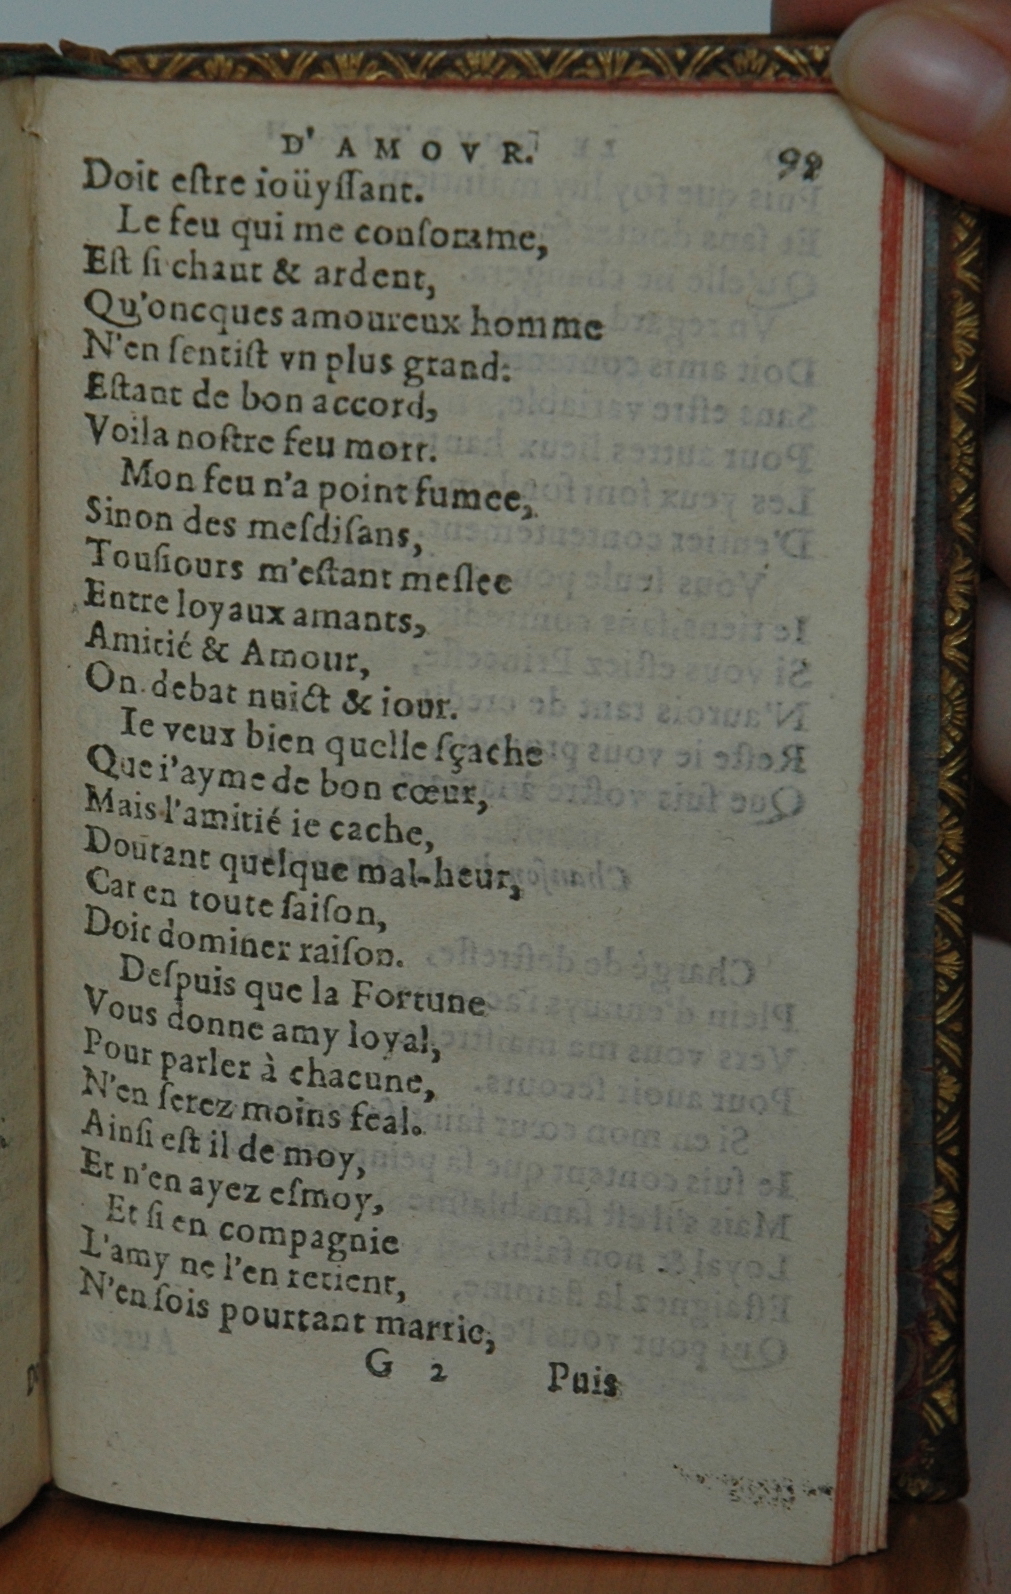 D' AMOVR. 99
Doit eſtre ioüyſſant.
Le feu qui me conſomme,
Eſt ſi chaut & ardent,
Qu'oncques amoureux homme
N'en ſentiſt vn plus grand:
Eſtant de bon accord,
Voila noſtre feu mort.
Mon feu n'a point fumee,
Sinon des meſdiſans,
Touſiours m'eſtant meſlee
Entre loyaux amants,
Amitié & Amour,
On debat nuict & iour.
Ie veux bien quelle ſçache
Que i'ayme de bon cœur,
Mais l'amitié ie cache,
Doutant quelque mal-heur,
Car en toute ſaiſon,
Doit dominer raiſon.
Deſpuis que la Fortune
Vous donne amy loyal,
Pour parler à chacune,
N'en ſerez moins feal.
Ainſi eſt il de moy,
Et n'en ayez eſmoy,
Et ſi en compagnie
L'amy ne l'en retient,
N'en ſois pourtant marrie,
G 2 Puis